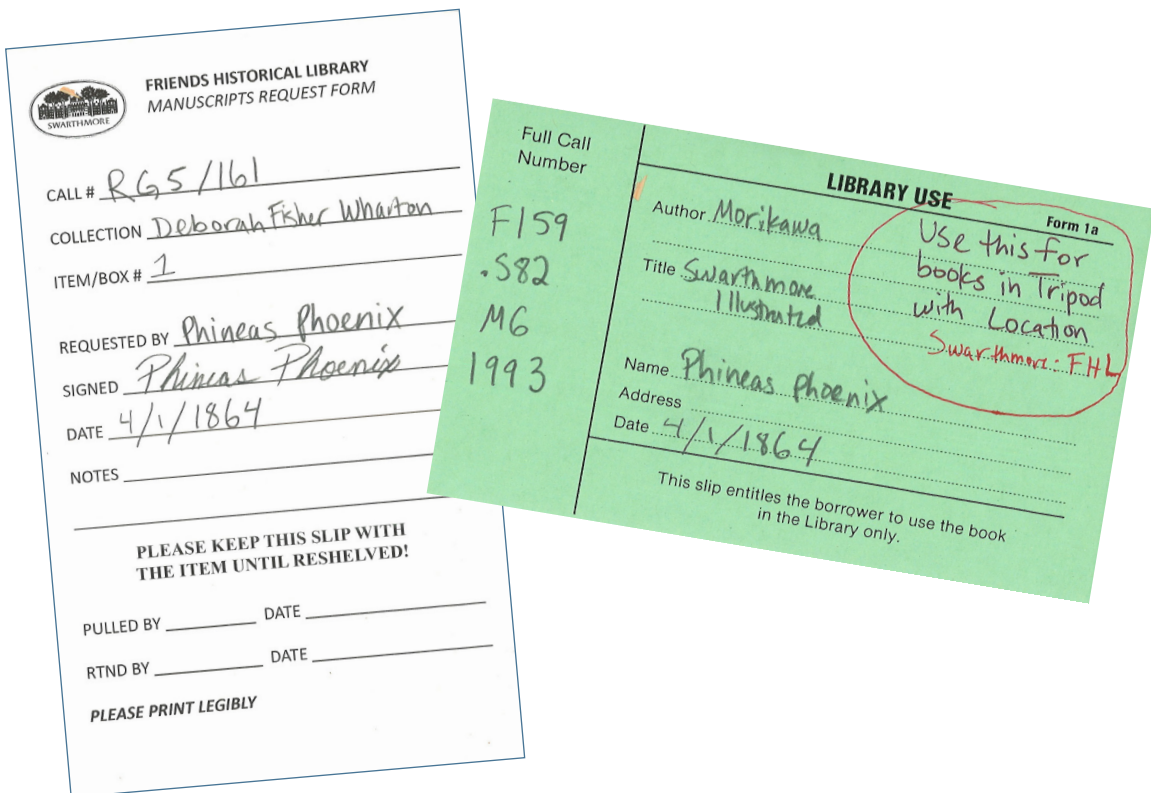 FRIENDS HISTORICAL LIBRARY
MANUSCRIPTS REQUEST FORM
SWARTHMORE
CALL # RG5/161
COLLECTION Deborah Fisher Wharton
ITEM/BOX # 1
REQUESTED BY Phineas Phoenix
SIGNED Phineas Phoenix
DATE 4/1/1864
NOTES
PLEASE KEEP THIS SLIP WITH
THE ITEM UNTIL RESHELVED!
PULLED BY DATE
RTND BY DATE
PLEASE PRINT LEGIBLY
Full Call
Number
F159
.S82
M6
1993
LIBRARY USE
Form 1a
Author Morikawa
Title Swarthmore
Illustrated
Use this for
books in Tripod
with Location
Swarthmore: FHL
Name Phineas Phoenix
Address
Date 4/1/1864
This slip entitles the borrower to use the book
in the Library only.